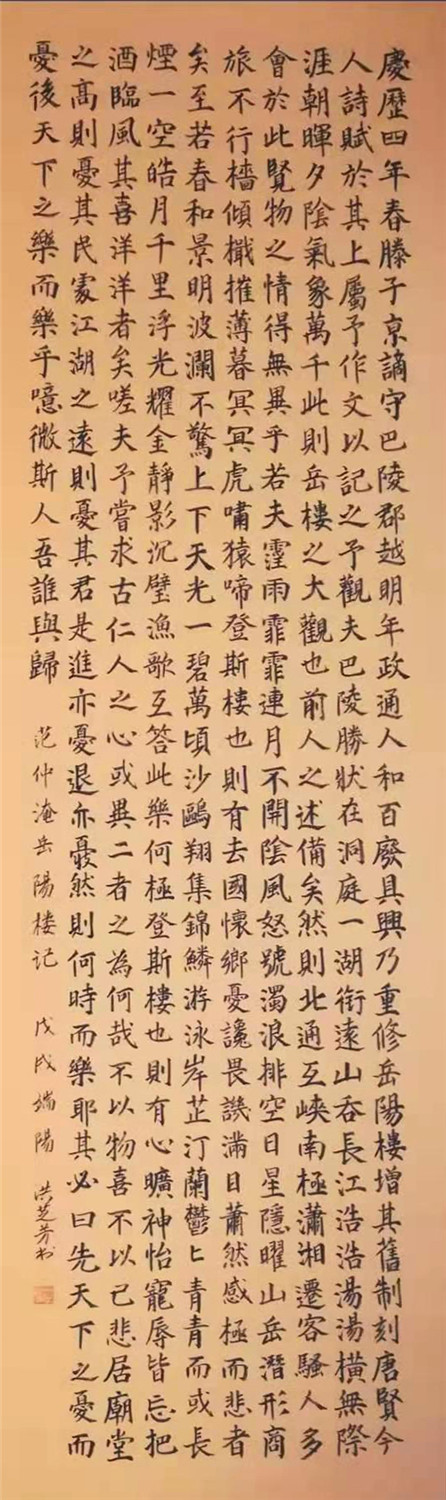 慶歷四年春滕子京謫守巴陵郡越明年政通人和百廢具興乃重修岳陽樓增其舊制刻唐賢今
人詩賦於其上屬予作文以記之予觀夫巴陵勝狀在洞庭一湖銜遠山吞長江浩浩湯湯橫無際
涯朝暉夕陰氣象萬千此則岳樓之大觀也前人之述備矣然則北通互峽南極瀟湘遷客騷人多
會於此覽物之情得無異乎若夫霪雨霏霏連月不開陰風怒號濁浪排空日星隱曜山岳潛形商
旅不行檣傾檝摧薄暮冥冥虎嘯猿啼登斯樓也則有去國懷鄉憂讒畏譏滿目蕭然感極而悲者
矣至若春和景明波瀾不驚上下天光一碧萬頃沙鷗翔集錦鱗游泳岸芷汀蘭鬱〻青青而或長
煙一空皓月千里浮光耀金靜影沉璧漁歌互答此樂何極登斯樓也則有心曠神怡寵辱皆忘把
酒臨風其喜洋洋者矣嗟夫予嘗求古仁人之心或異二者之為何哉不以物喜不以己悲居廟堂
之高則憂其民處江湖之遠則憂其君是進亦憂退亦憂然則何時而樂耶其必曰先天下之憂而
憂後天下之樂而樂乎噫微斯人吾誰與歸 范仲淹岳陽樓记 戊戌端陽 洪芝芳书